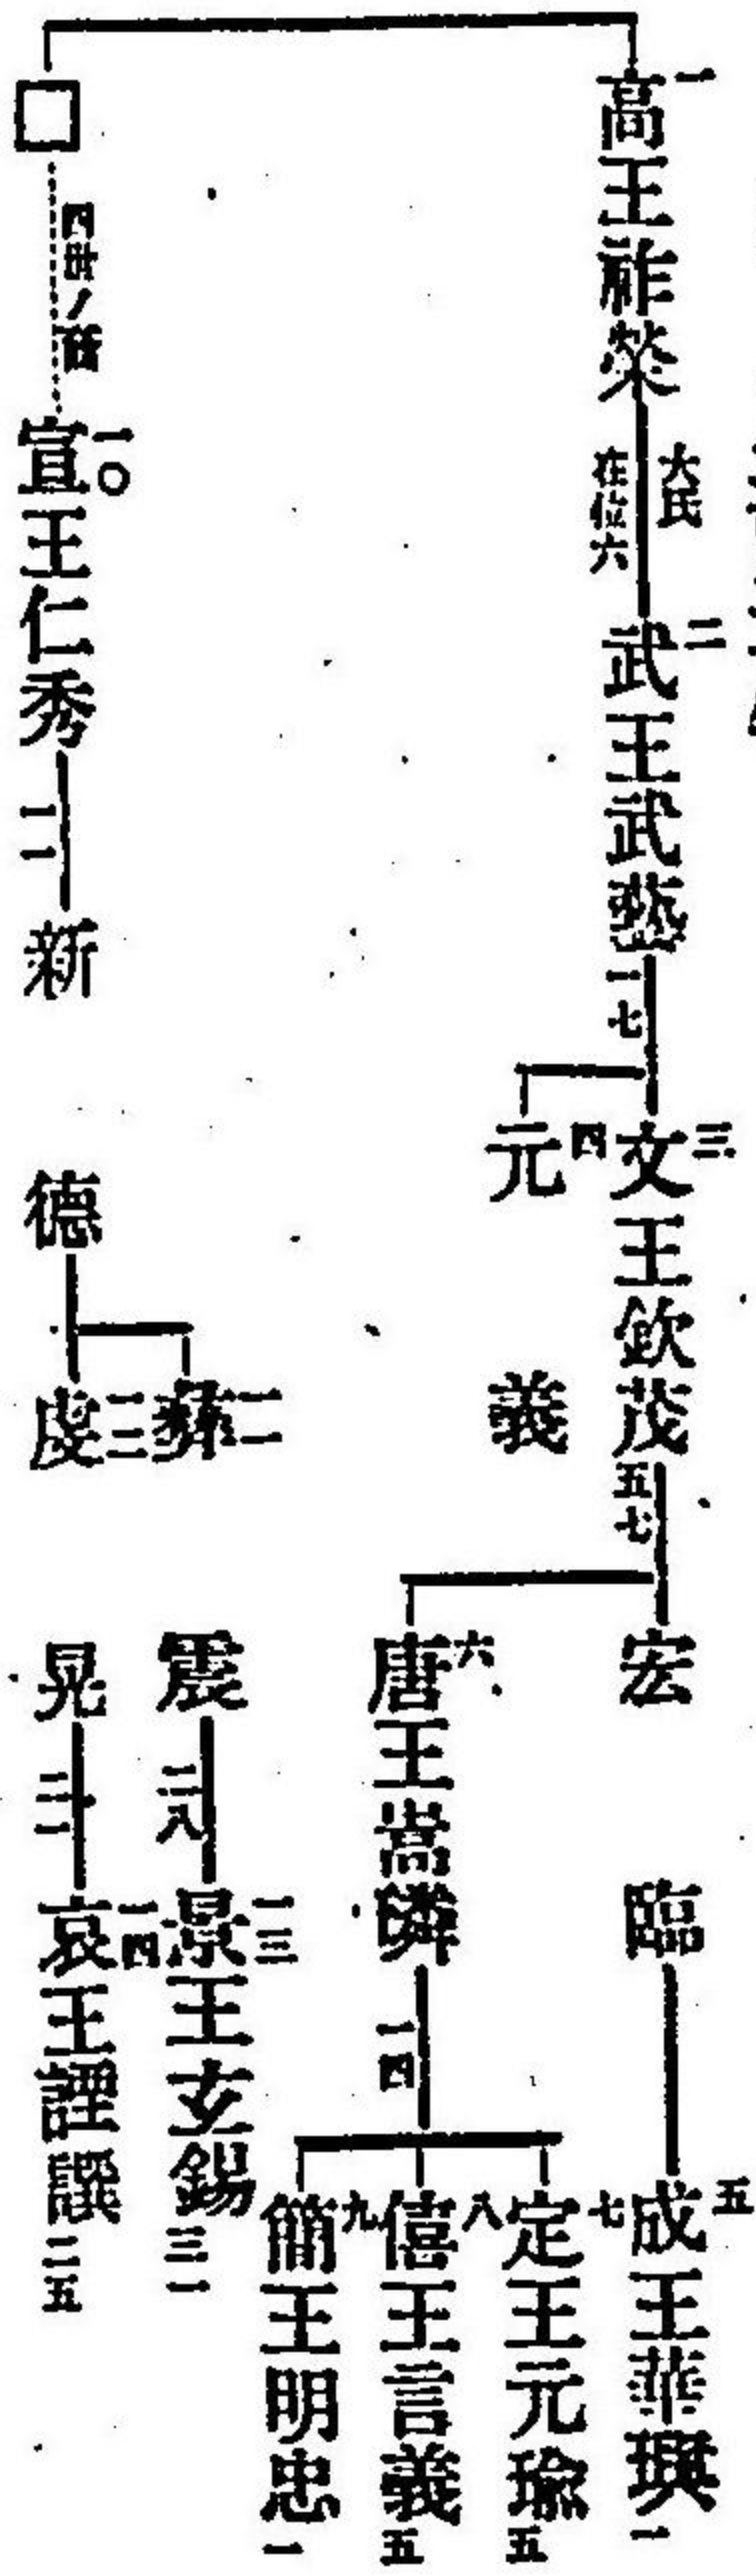 一
高王祚榮
大氏
在位六
二
武王武藝
一七
三
文王欽茂
五七
四
元義
宏臨
五
成王華璵
一
六
唐王嵩隣
一四
七
定王元瑜
五
八
僖王言義
五
九
簡王明忠
一
□
四世ノ孫
一〇
宣王仁秀
一一
新德
一一
彝震
二八
一二
虔晃
二一
一三
景王玄錫
三一
一四
哀王諲譔
二五